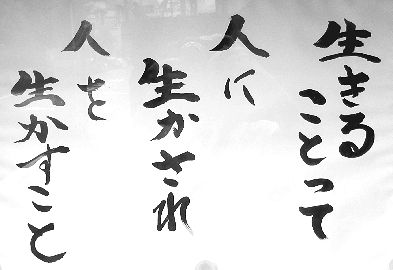 生きる
ことって
人に
生かされ
人を
生かすこと